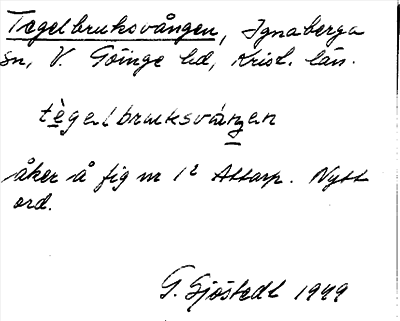 Tegelbruksvången, Ignaberga
sn, V. Göinge hd, Krist. län.
tègalbruksváŋən
åker å fig nr 1² Attarp. Nytt
ord.
G. Sjöstedt 1949